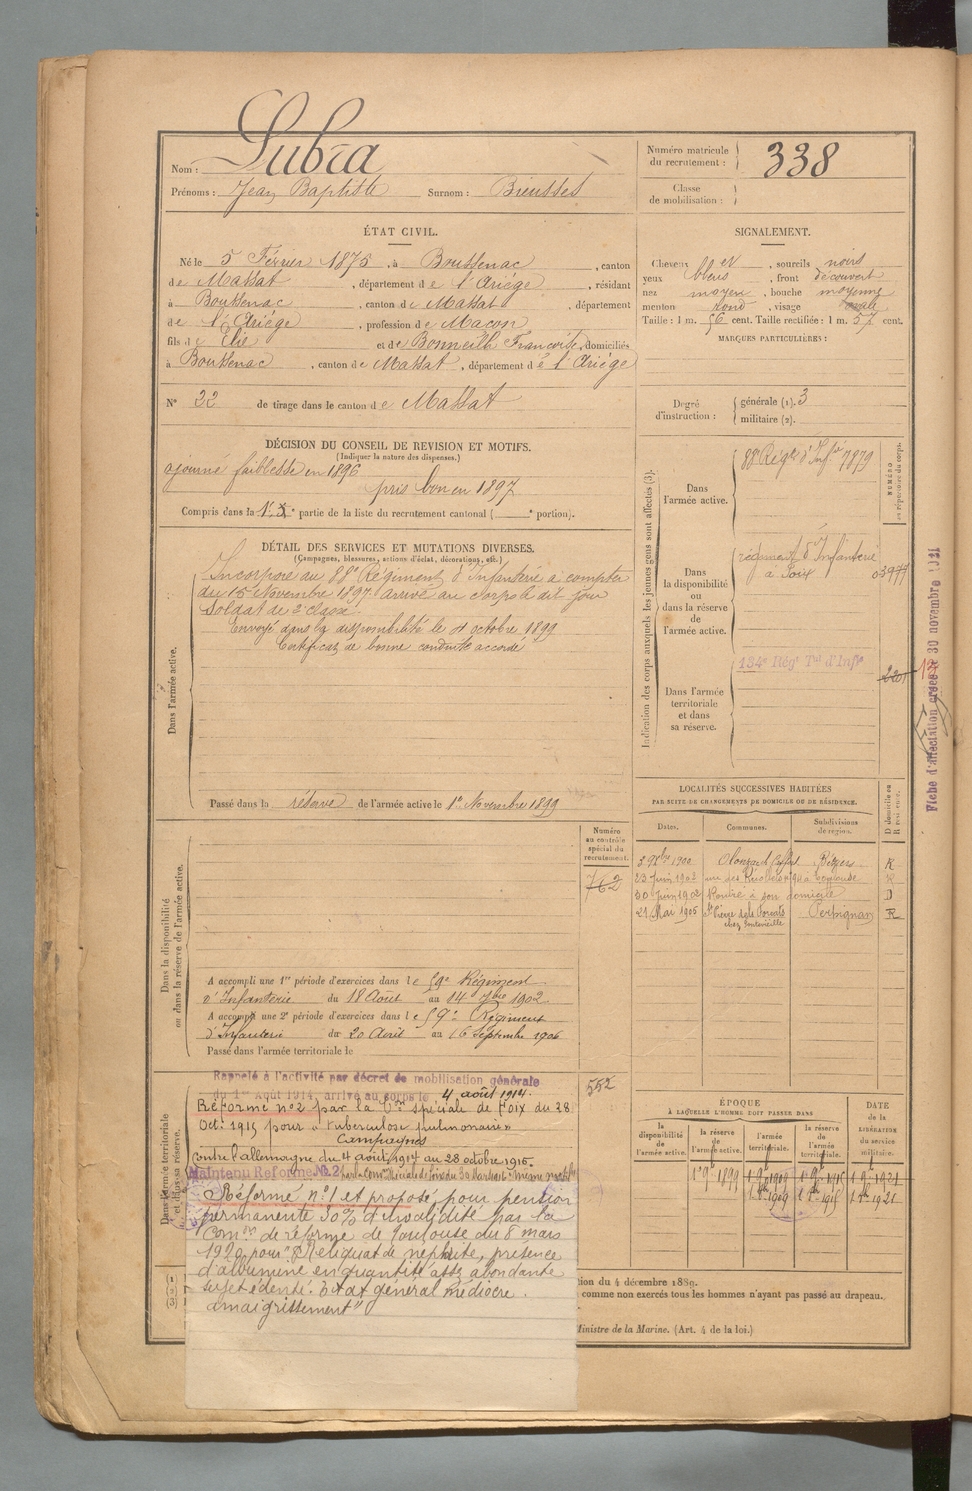 Nom : Lubra
Prénoms : Jean Baptiste Surnom : Brensses
Numéro matricule du recrutement : 338
Classe de mobilisation :
ÉTAT CIVIL.
Né le 5 Février 1875, à Boussenac, canton
de Massat, département de l'Ariége, résidant
à Boussenac, canton de Massat, département
de l'Ariége, profession de Maçon
fils de Elie et de Bonneilh Françoise, domiciliés
à Boussenac, canton de Massat, département de l'Ariége
N° 22 de tirage dans le canton de Massat
SIGNALEMENT.
Cheveux, sourcils noirs
yeux bleus, front découvert
nez moyen, bouche moyenne
menton rond, visage ovale
Taille : 1 m. 56 cent. Taille rectifiée : 1 m. 57 cent.
MARQUES PARTICULIÈRES :
Degré d'instruction : générale (1). 3
militaire (2).
DÉCISION DU CONSEIL DE REVISION ET MOTIFS.
(Indiquer la nature des dispenses.)
ajourné faiblesse en 1896
pris bon en 1897
Compris dans la 1e partie de la liste du recrutement cantonal ( e portion).
DÉTAIL DES SERVICES ET MUTATIONS DIVERSES.
(Campagnes, blessures, actions d'éclat, décorations, etc.)
Dans l'armée active.
Incorporé au 88e Régiment d'Infanterie a compter
du 15 Novembre 1897. arrivé au corps le dit jour
Soldat de 2e classe.
Envoyé dans la disponibilité le 4 octobre 1899
Certificat de bonne conduite accordé
Passé dans la réserve de l'armée active le 1er Novembre 1899
Indication des corps auxquels les jeunes gens sont affectés (3).
NUMÉRO au répertoire du corps.
Dans l'armée active. 88e Régt d'Infie 7879
Dans la disponibilité ou dans la réserve de l'armée active. régiment d'Infanterie
à Foix
Dans l'armée territoriale et dans sa réserve. 134e Régt Tal d'Infie
Fiche d'affectation créée le 30 novembre 1921
LOCALITÉS SUCCESSIVES HABITÉES
PAR SUITE DE CHANGEMENTS DE DOMICILE OU DE RÉSIDENCE.
Dates. Communes. Subdivisions de région. D domicile ou R résidence.
1900 Olonzac Béziers R
23 Juin 1902 Toulouse R
30 Juin 1902 Rentré à son domicile D
21 Mai 1905 Perpignan R
Dans la disponibilité ou dans la réserve de l'armée active.
Numéro au contrôle spécial du recrutement.
762
A accompli une 1re période d'exercices dans le 59e Régiment
d'Infanterie du 18 Août au 14 7bre 1902
A accompli une 2e période d'exercices dans le 59e Régiment
d'Infanterie du 20 Août au 16 Septembre 1906
Passé dans l'armée territoriale le
Dans l'armée territoriale et dans sa réserve.
552
Rappelé à l'activité par décret de mobilisation générale
du 1er Août 1914 arrivé au corps le 4 août 1914.
Réformé n°2 par la Con spéciale de Foix du 28
Oct. 1915 pour « tuberculose pulmonaire »
Campagnes
Contre l'allemagne du 4 août 1914 au 28 octobre 1915.
Maintenu Réformé N° 2
Réformé n°1 et proposé pour pension
permanente 30% d'invalidité par la
Comon de réforme de Toulouse du 8 mars
1920 pour "Reliquat de néphrite, présence
d'albumine en quantité assez abondante
sujet édenté. Etat général médiocre.
amaigrissement"
ÉPOQUE
À LAQUELLE L'HOMME DOIT PASSER DANS
la disponibilité de l'armée active. la réserve de l'armée active. l'armée territoriale. la réserve de l'armée territoriale.
DATE de la LIBÉRATION du service militaire.
1 9bre 1899 1 9bre 1909 1 9bre 1915 1 9bre 1921
1909 1915 1921
tion du 4 décembre 1889.
comme non exercés tous les hommes n'ayant pas passé au drapeau.
Ministre de la Marine. (Art. 4 de la loi.)